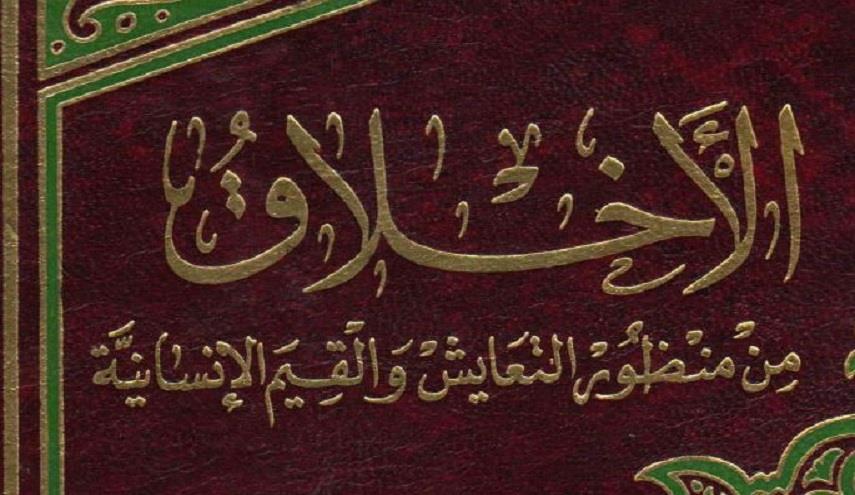 الأخلاقُ
مِنْ منْظُورْ التعَايشْ وَالْقِيَم الإنسانيَّة